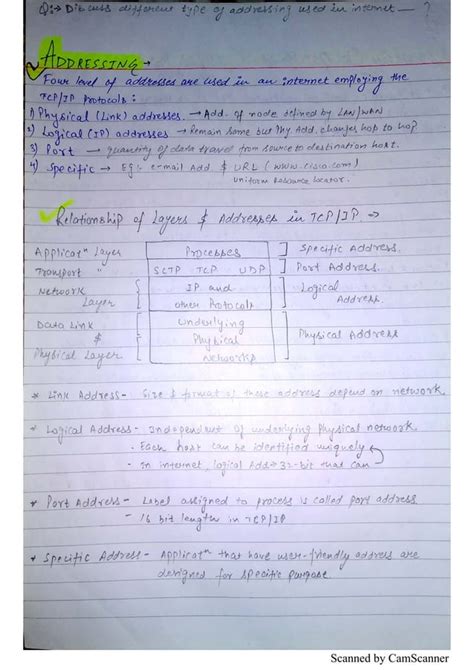 Q:- Discuss different type of addressing used in internet — ?
ADDRESSING →
Four level of addresses are used in an internet employing the
TCP/IP Protocols :
1) Physical (Link) addresses. → Add. of node defined by LAN/WAN
2) Logical (IP) addresses → Remain same but Phy Add. changes hop to hop
3) Port → quantity of data travel from source to destination host.
4) Specific → Eg:- e-mail Add. & URL (www.cisco.com)
Uniform Resource Locator.
Relationship of Layers & Addresses in TCP/IP →
Applicatn Layer Processes Specific Address.
Transport " SCTP TCP UDP Port Address.
Network IP and Logical
Layer other Protocols Address.
Data Link Underlying
& Physical Physical Address
Physical Layer Networks
* Link Address - Size & format of these address depend on network.
* Logical Address - Independent of underlying physical network.
- Each host can be identified uniquely
- In internet, logical Add → 32-bit that can
* Port Address - Label assigned to process is called port address
- 16 bit length in TCP/IP
* Specific Address - Applicatn that have user-friendly address are
designed for specific purpose.
Scanned by CamScanner